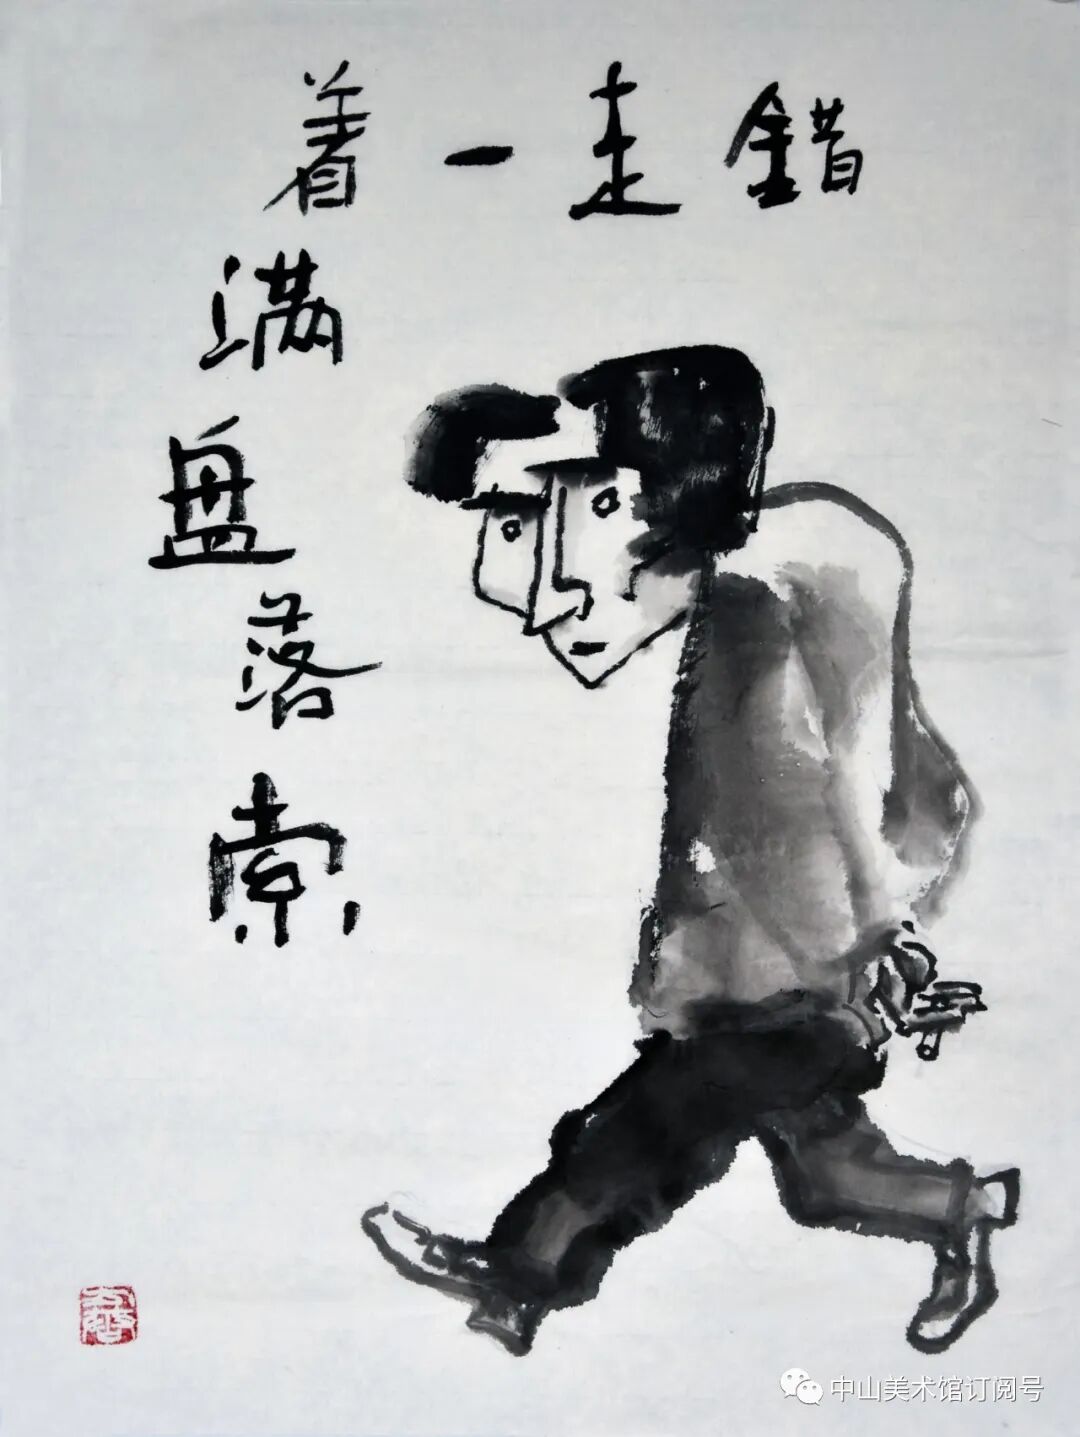 錯走一着
满盘落索
中山美术馆订阅号